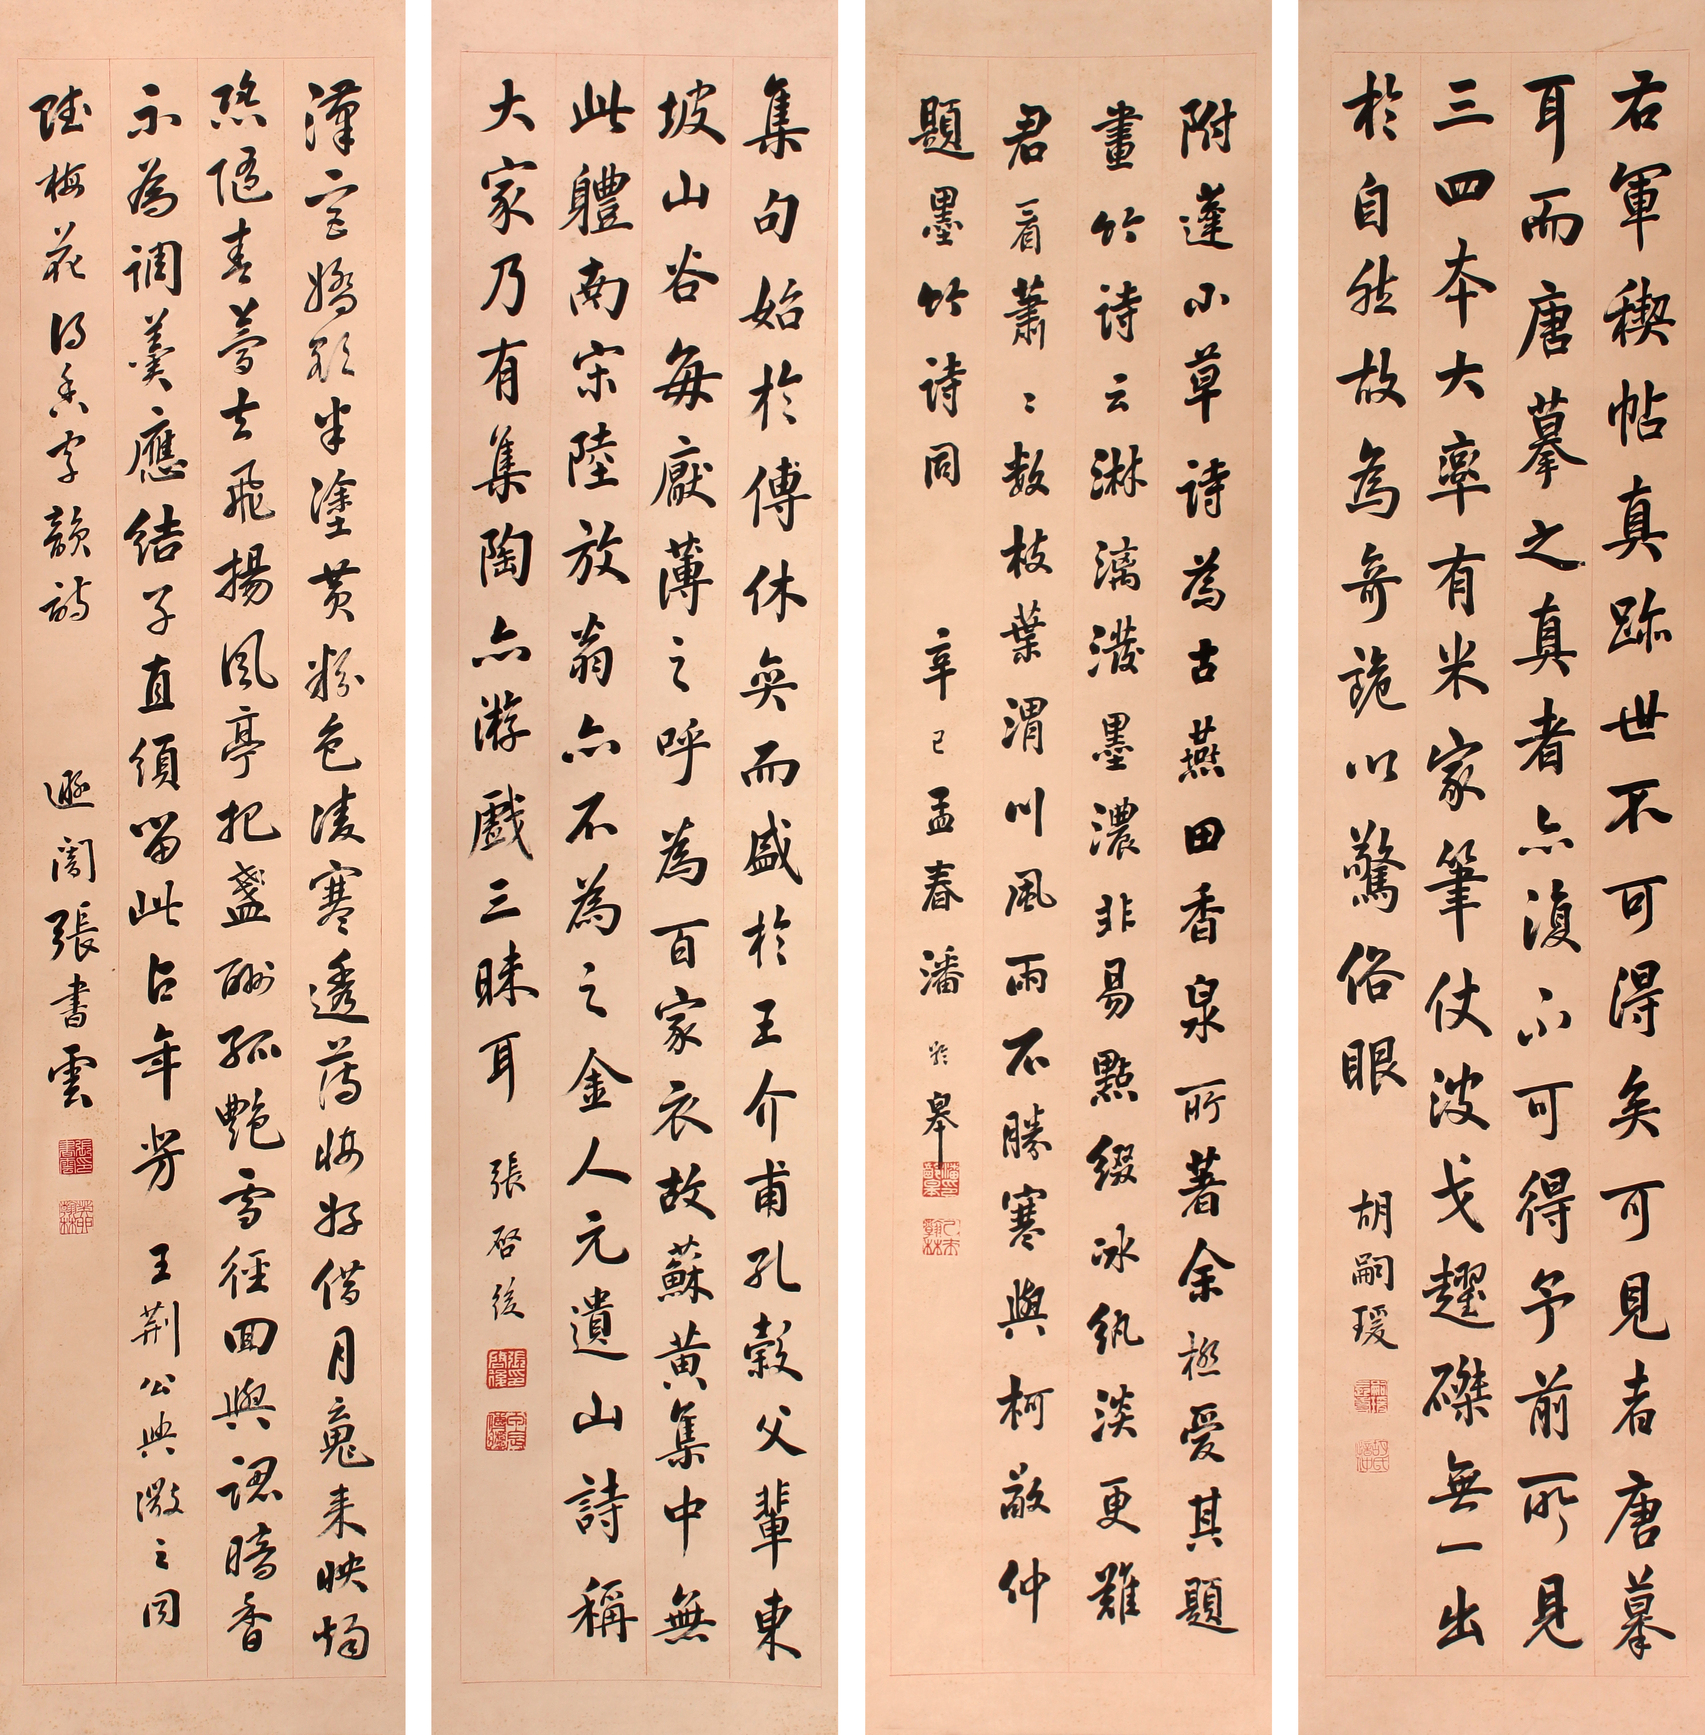 右軍稧帖真跡世不可得矣可見者唐摹
耳而唐摹之真者亦復不可得予前所見
三四本大率有米家筆仗波戈趯磔無一出
於自然故為奇詭以驚俗眼 胡嗣瑗
附蓬小草詩為古燕田香泉所著余極愛其題
畫竹詩云淋漓潑墨濃非易點綴冰紈淡更難
君看蕭〻數枝葉渭川風雨不勝寒與柯敬仲
題墨竹詩同 辛巳孟春潘齡皋
集句始於傅休奕而盛於王介甫孔毅父輩東
坡山谷每厭薄之呼為百家衣故蘇黃集中無
此體南宋陸放翁亦不為之金人元遺山詩稱
大家乃有集陶亦游戲三昧耳 張啓後
漢宮嬌額半塗黃粉色凌寒透薄妝好借月魂來映燭
恐隨春夢去飛揚風亭把盞酬孤艷雪徑回輿認暗香
不為調羹應結子直須留此占年芳 王荊公與微之同
賦梅花得香字韻詩 遯闇張書雲